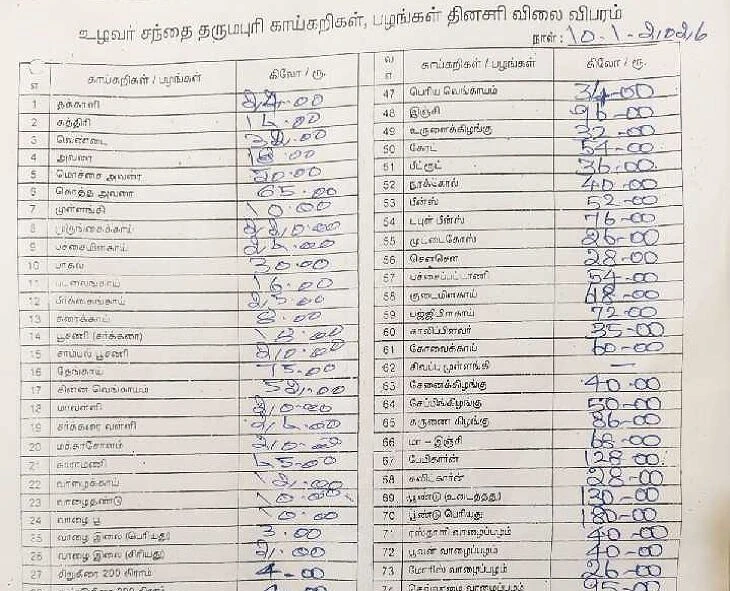 உழவர் சந்தை தருமபுரி காய்கறிகள், பழங்கள் தினசரி விலை விபரம்
நாள்: 10-1-2026
காய்கறிகள் / பழங்கள் கிலோ / ரூ.
1 தக்காளி
2 கத்திரி
3 வெண்டை
4 அவரை 18.00
5 மொச்சை அவரை
6 கொத்த அவரை 65.00
7 முள்ளங்கி 10.00
8 முருங்கைக்காய் 220.00
9 பச்சைமிளகாய்
10 பாகல் 30.00
11 புடலங்காய் 16.00
12 பீர்க்கங்காய் 25.00
13 சுரைக்காய் 8.00
14 பூசணி (சர்க்கரை) 18.00
15 சாம்பல் பூசணி 20.00
16 தேங்காய் 75.00
17 சின்ன வெங்காயம் 52.00
18 மாவள்ளி 20.00
19 சர்க்கரை வள்ளி
20 மக்காசோளம் 20.00
21 காராமணி
22 வாழைக்காய்
23 வாழைதண்டு 10.00
24 வாழை பூ 10.00
25 வாழை இலை (பெரியது) 3.00
26 வாழை இலை (சிறியது) 2.00
27 சிறுகீரை 200 கிராம் 4.00
காய்கறிகள் / பழங்கள் கிலோ / ரூ.
47 பெரிய வெங்காயம் 34-00
48 இஞ்சி 96-00
49 உருளைக்கிழங்கு 32-00
50 கேரட் 54-00
51 பீட்ரூட் 36-00
52 நூக்கோல் 40-00
53 பீன்ஸ் 52-00
54 டபுள் பீன்ஸ் 76-00
55 முட்டைகோஸ் 26-00
56 சௌசௌ 28-00
57 பச்சைப்பட்டாணி 54-00
58 குடைமிளகாய் 48-00
59 பஜ்ஜிமிளகாய் 72-00
60 காலிப்ளவர் 35-00
61 கோவைக்காய் 60-00
62 சிவப்பு முள்ளங்கி —
63 சேனைக்கிழங்கு 40-00
64 சேப்பங்கிழங்கு 50-00
65 கருணை கிழங்கு 86-00
66 மா - இஞ்சி 68-00
67 பேபிகார்ன் 128-00
68 ஸ்வீட்கார்ன் 28-00
69 பூண்டு (உடைத்தது) 130-00
70 பூண்டு பெரியது 180-00
71 ரஸ்தாளி வாழைப்பழம் 40-00
72 பூவன் வாழைப்பழம் 40-00
73 மோரிஸ் வாழைப்பழம் 26-00
74 வாழைப்பழம் 95-00